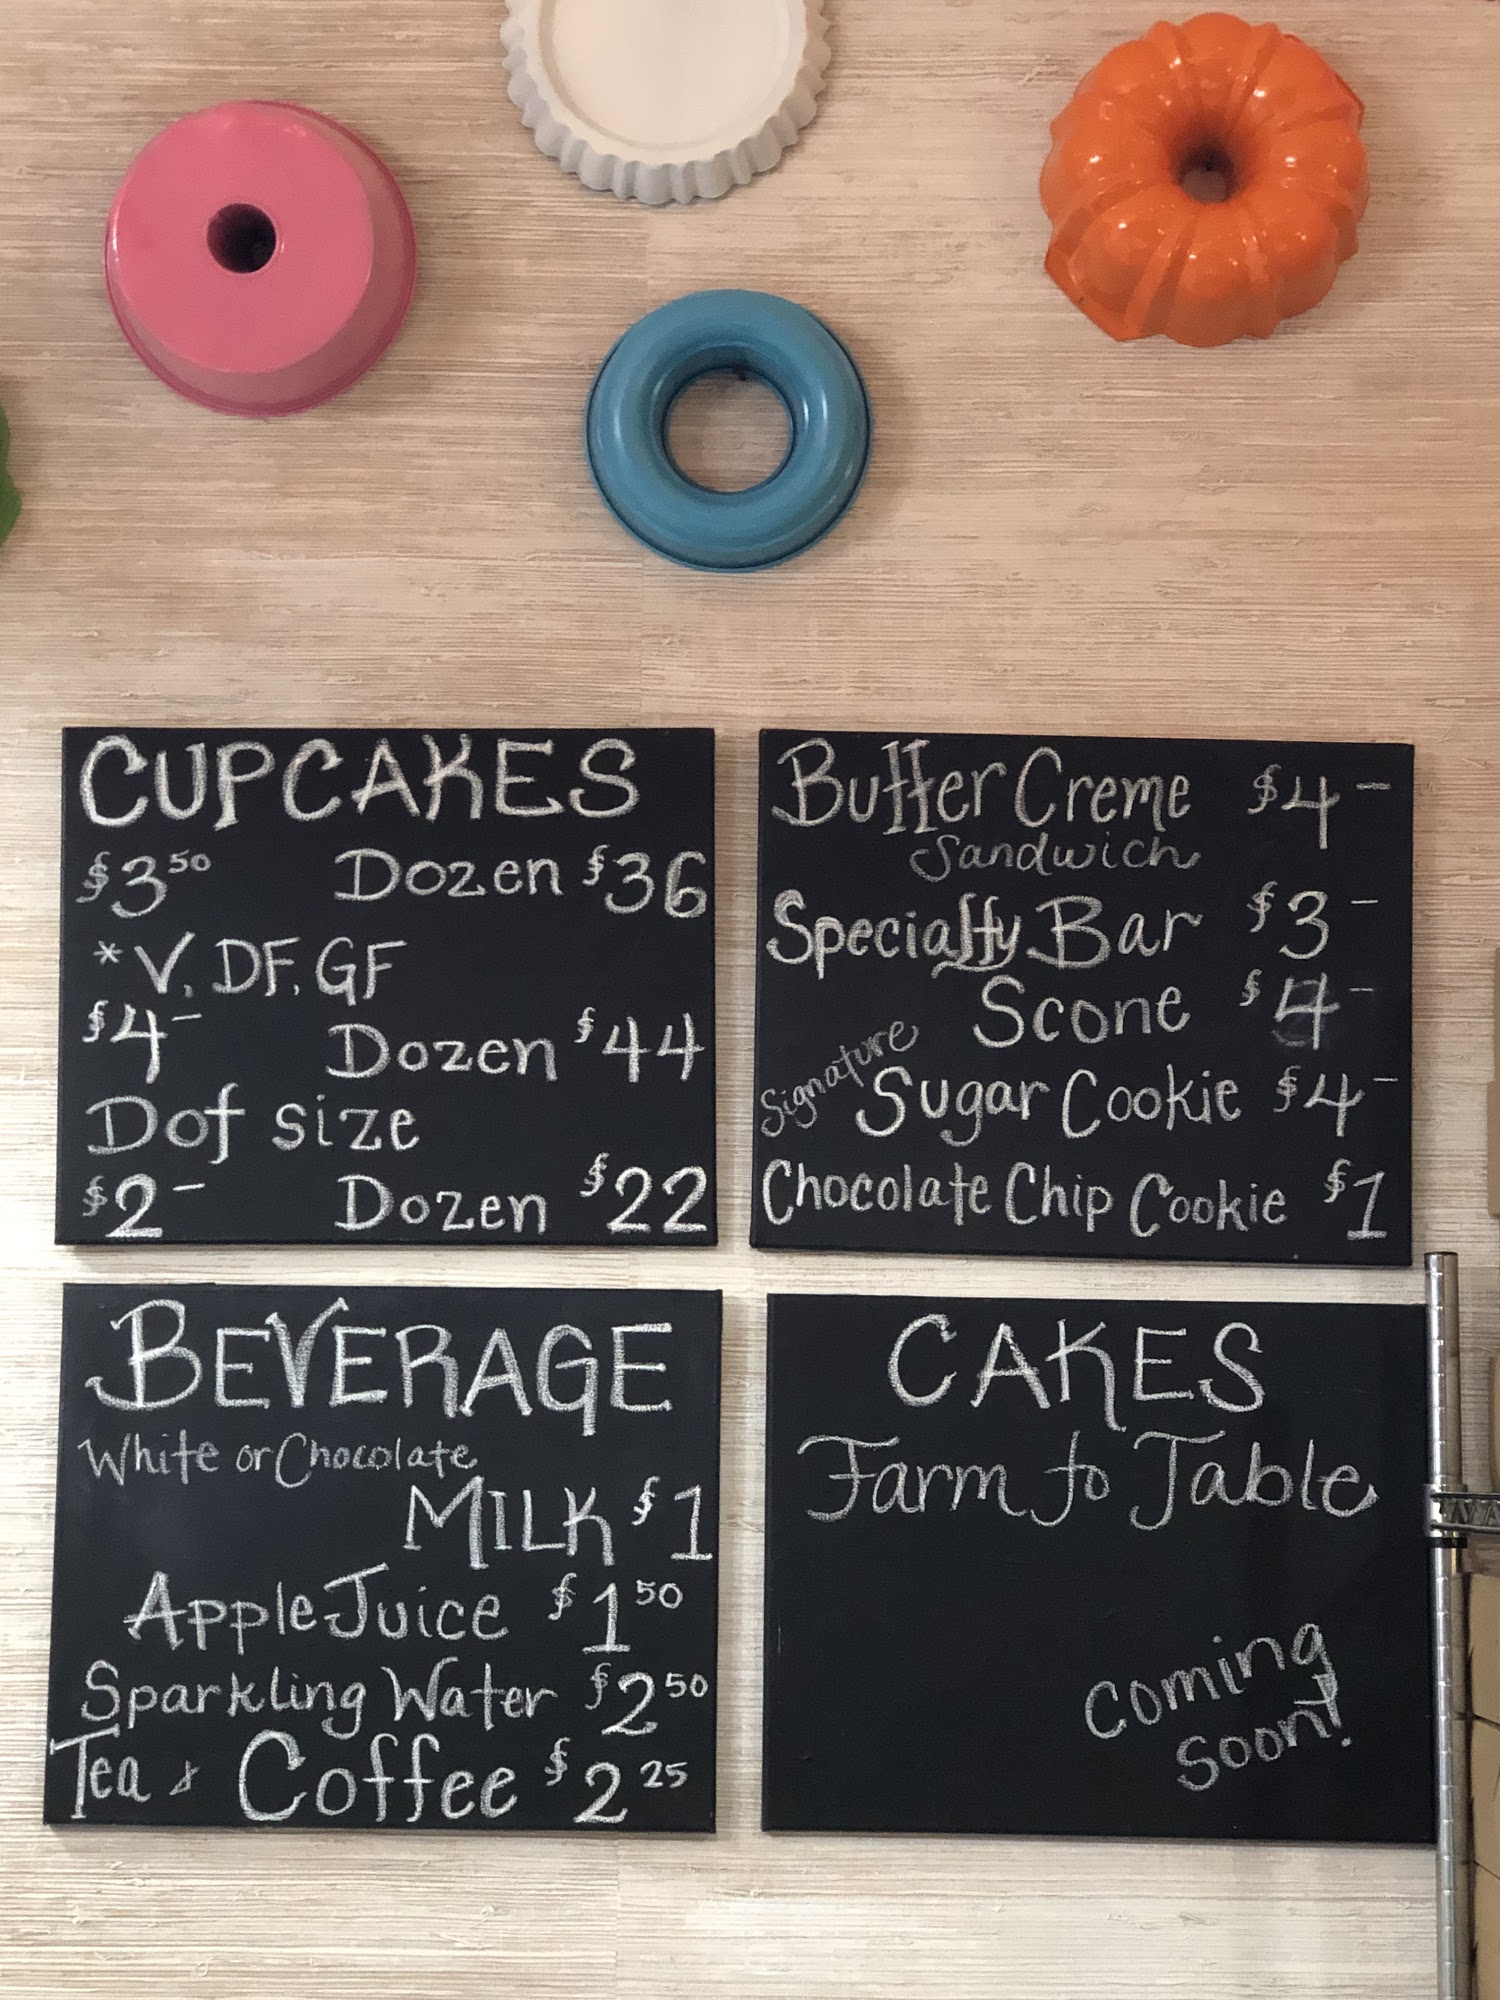 CUPCAKES
$3.50 Dozen $36
*V, DF, GF
$4- Dozen $44
Dot size
$2- Dozen $22
Butter Creme $4-
Sandwich
Specialty Bar $3-
Scone $4-
Signature Sugar Cookie $4-
Chocolate Chip Cookie $1
BEVERAGE
White or Chocolate
MILK $1
Apple Juice $1.50
Sparkling Water $2.50
Tea & Coffee $2.25
CAKES
Farm to Table
Coming
Soon!